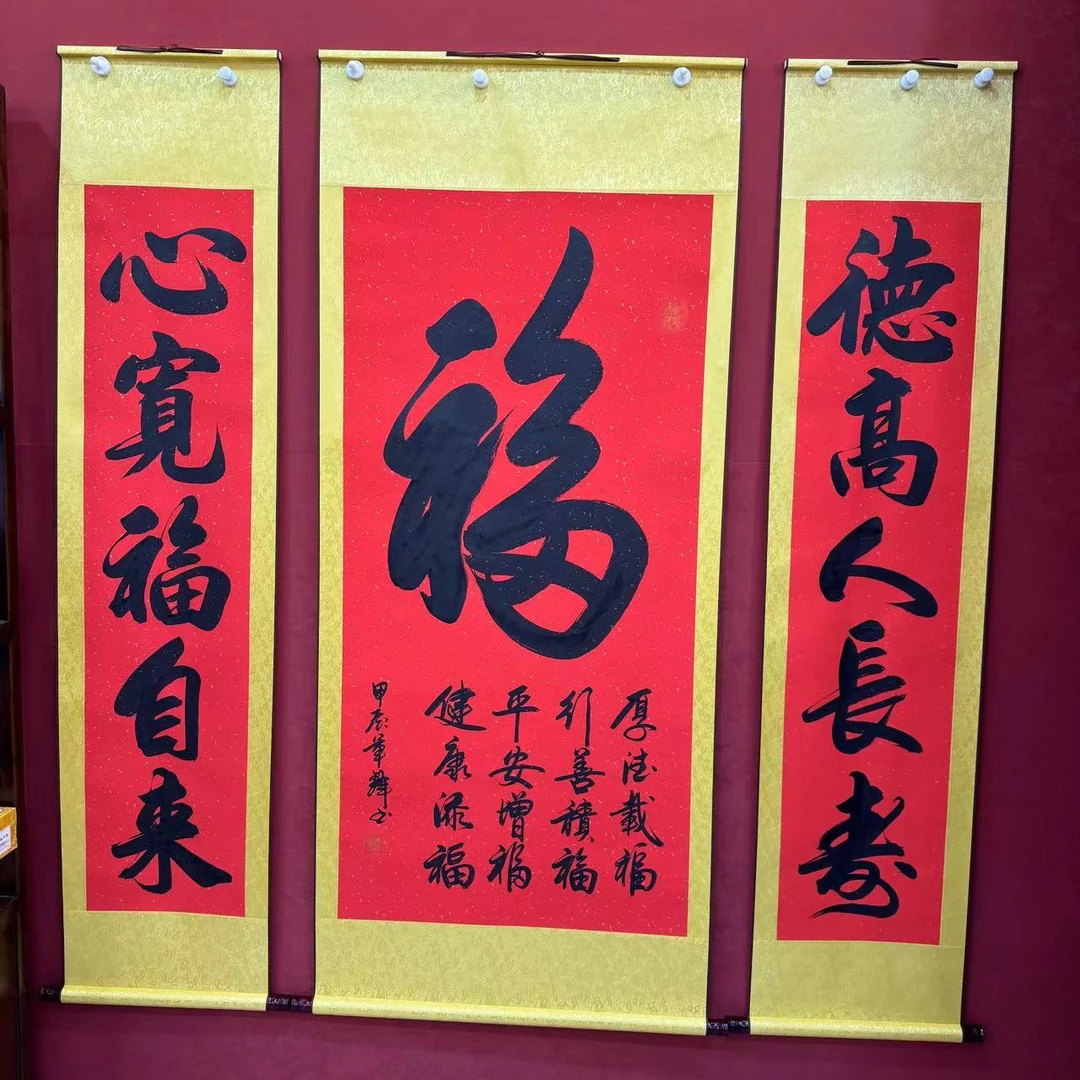 德高人長壽
福
厚德載福
行善積福
平安增福
健康添福
甲辰華輝书
心寬福自来